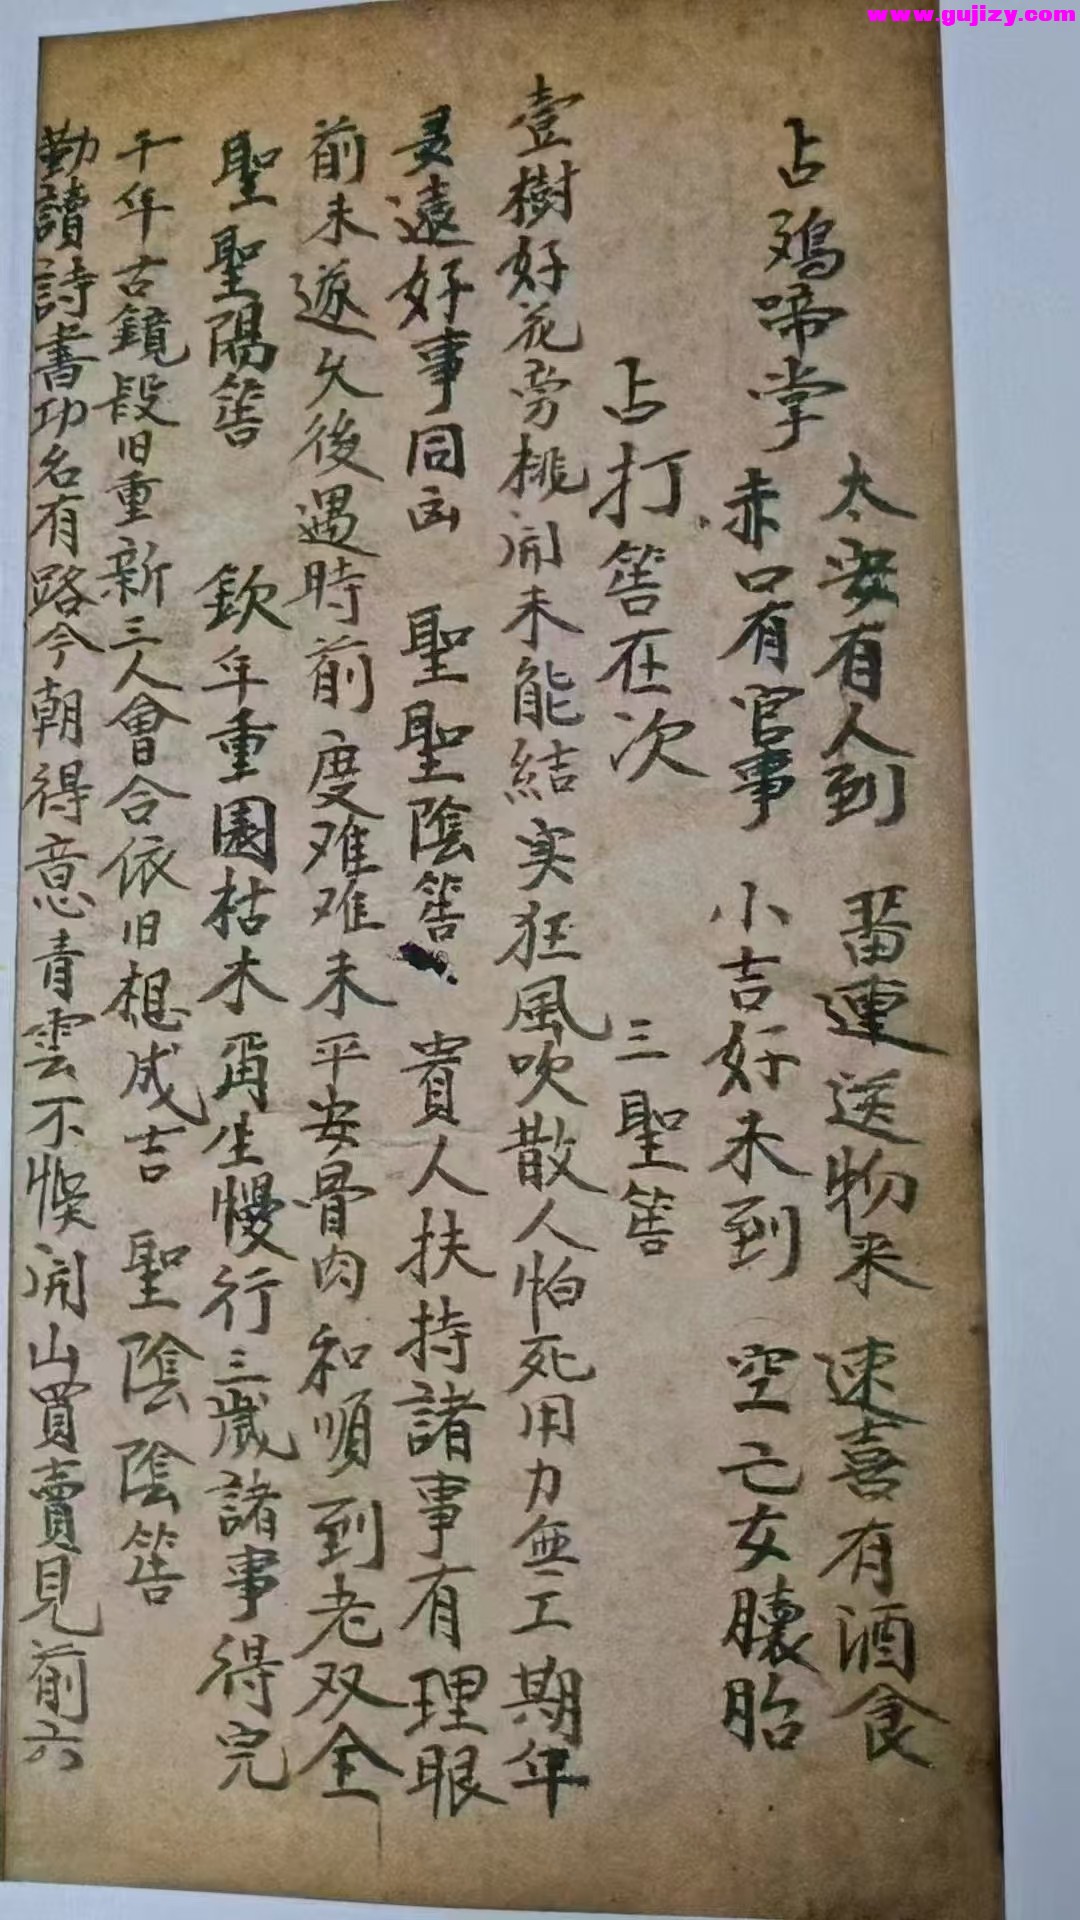 www.gujizy.com
占鴉啼掌
太安有人到 畱連送物来 速喜有酒食
赤口有官事 小吉好未到 空亡女懷胎
占打筶在次 三聖筶
壹樹好花旁桃開未能結实狂風吹散人怕死用力無工期年
遠好事同凶 聖聖陰筶 貴人扶持諸事有理眼
前未遂久後遇時前度难难未平安骨肉和順到老双全
聖聖陽筶 欽年重圓枯木再生慢行三歲諸事得完
千年古鏡段旧重新三人會合依旧想成吉 聖陰陰筶
勤讀詩書功名有路今朝得意青雲不悞開山買賣見前六